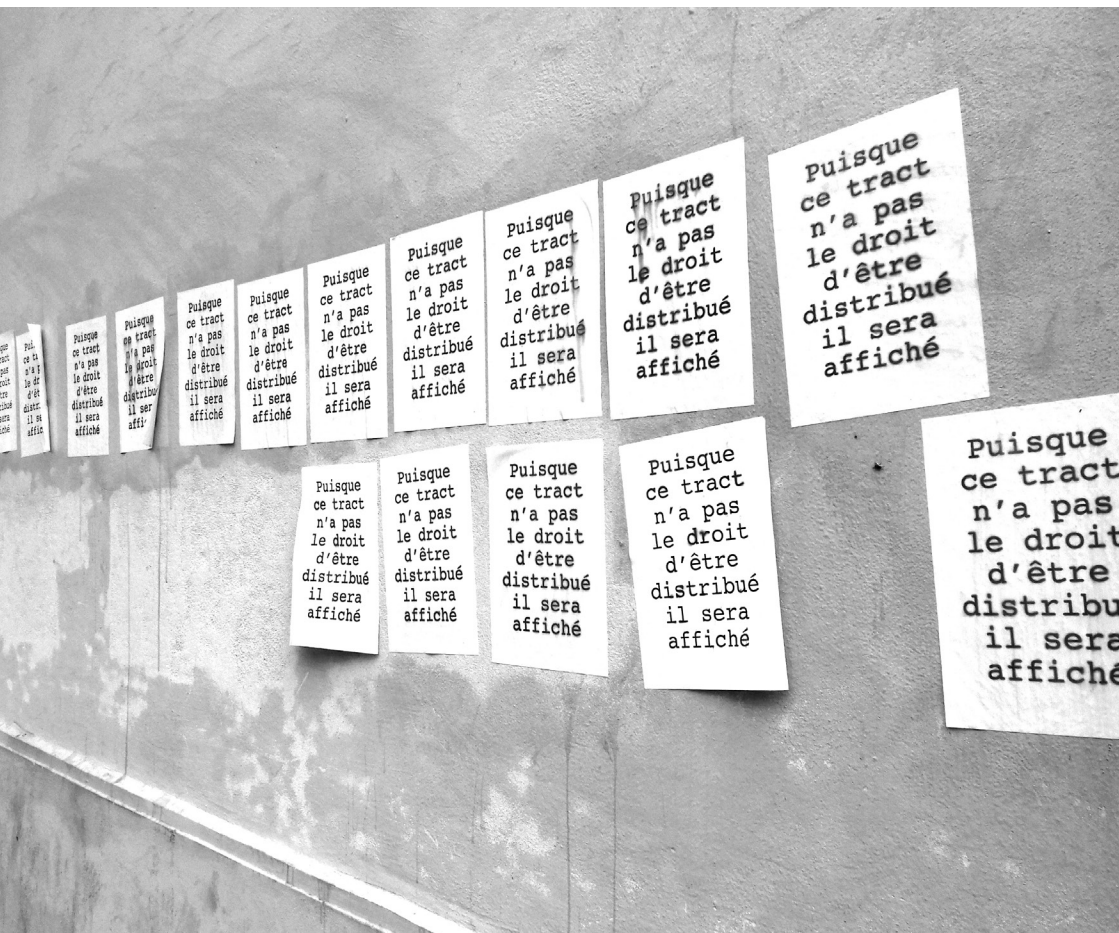 Puisque
ce tract
n'a pas
le droit
d'être
distribué
il sera
affiché
Puisque
ce tract
n'a pas
le droit
d'être
distribu
il ser
affi
Puisque
ce tract
n'a pas
le droit
d'être
distribué
il sera
affiché
Puisque
ce tract
n'a pas
le droit
d'être
distribué
il sera
affiché
Puisque
ce tract
n'a pas
le droit
d'être
distribué
il sera
affiché
Puisque
ce tract
n'a pas
le droit
d'être
distribué
il sera
affiché
Puisque
ce tract
n'a pas
le droit
d'être
distribué
il sera
affiché
Puisque
ce tract
n'a pas
le droit
d'être
distribué
il sera
affiché
Puisque
ce tract
n'a pas
le droit
d'être
distribué
il sera
affiché
Puisque
ce tract
n'a pas
le droit
d'être
distribué
il sera
affiché
Puisque
ce tract
n'a pas
le droit
d'être
distribué
il sera
affiché
Puisque
ce tract
n'a pas
le droit
d'être
distribué
il sera
affiché
Puisque
ce tract
n'a pas
le droit
d'être
distribué
il sera
affiché
Puisque
ce tract
n'a pas
le droit
d'être
distribu
il sera
affiché